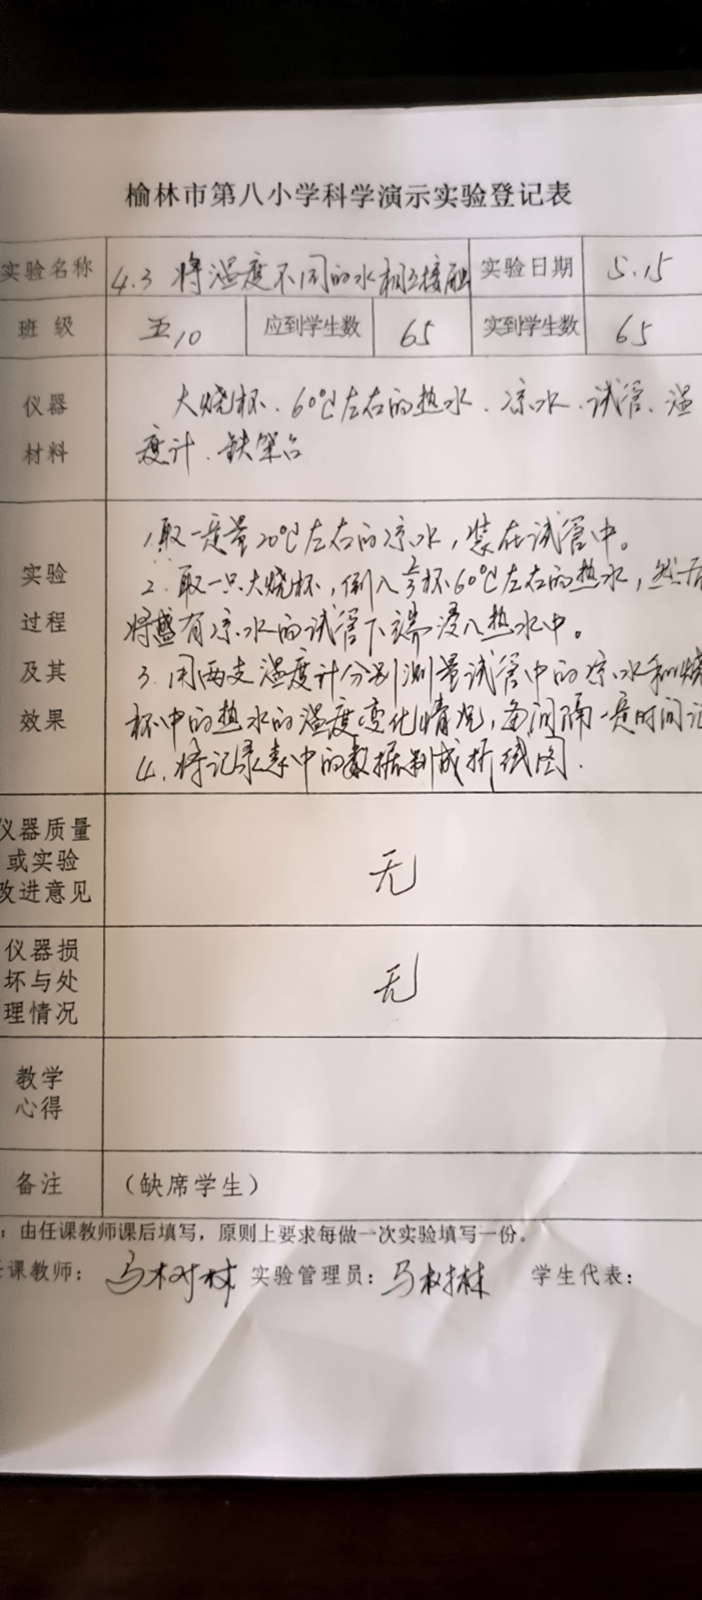 榆林市第八小学科学演示实验登记表
实验名称 4.3 将温度不同的水相互接触 实验日期 5.15
班级 五10 应到学生数 65 实到学生数 65
仪器材料 大烧杯、60℃左右的热水、凉水、试管、温
度计、铁架台
实验过程及其效果 1.取一定量20℃左右的凉水,装在试管中。
2.取一只大烧杯,倒入2/3杯60℃左右的热水,然后
将盛有凉水的试管下端浸入热水中。
3.用两支温度计分别测量试管中的凉水和烧
杯中的热水的温度变化情况,每间隔一定时间记
4.将记录表中的数据制成折线图.
仪器质量或实验改进意见 无
仪器损坏与处理情况 无
教学心得
备注 (缺席学生)
:由任课教师课后填写,原则上要求每做一次实验填写一份。
任课教师: 马树林 实验管理员: 马树林 学生代表: